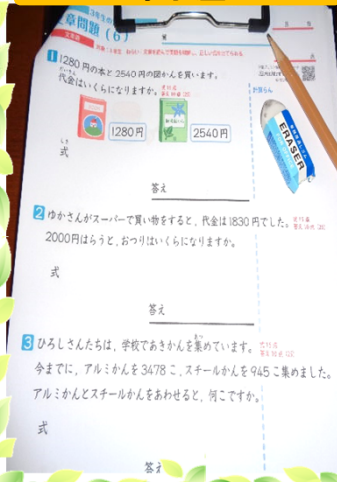 3年生の
文章問題(6)
1 1280円の本と2540円の図かんを買います。
代金はいくらになりますか。
1280円
2540円
お買らん
ERASER
しき
式
答え
2 ゆかさんがスーパーで買い物をすると、代金は1830円でした。
2000円はらうと、おつりはいくらになりますか。
式
答え
3 ひろしさんたちは、学校であきかんを集めています。
今までに、アルミかんを3478こ、スチールかんを945こ集めました。
アルミかんとスチールかんをあわせると、何こですか。
式
答え